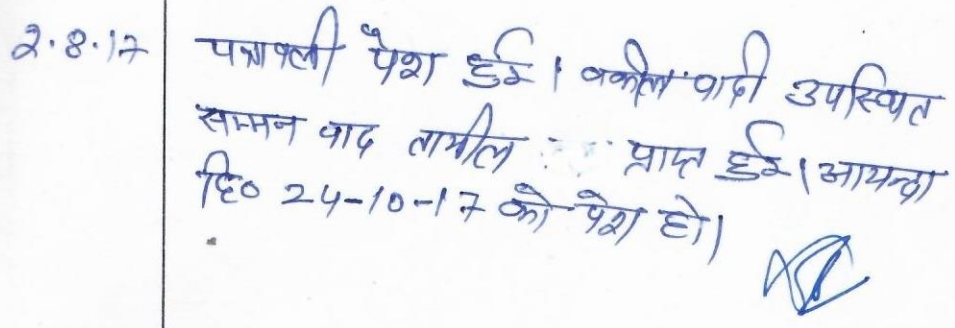 2.8.17 पत्रावली पेश हुई। वकील वादी उपस्थित
सम्मन वाद तामील प्राप्त हुई। आयन्दा
दि० 24-10-17 को पेश हो।